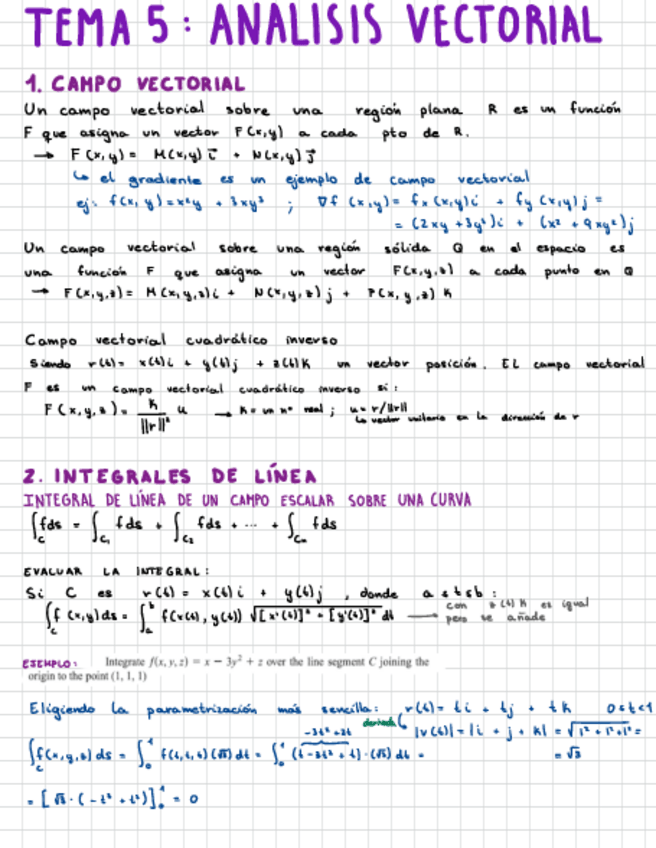 TEMA 5: ANALISIS VECTORIAL
1. CAMPO VECTORIAL
Un campo vectorial sobre una región plana R es un función
F que asigna un vector F(x,y) a cada pto de R.
→ F(x,y) = M(x,y) i⃗ + N(x,y) j⃗
↳ el gradiente es un ejemplo de campo vectorial
ej: f(x,y) = x²y + 3xy³ ; ∇f (x,y) = fx (x,y)i + fy (x,y) j =
= (2xy + 3y³)i + (x² + 9xy²)j
Un campo vectorial sobre una región sólida Q en el espacio es
una función F que asigna un vector F(x,y,z) a cada punto en Q
→ F(x,y,z) = M(x,y,z)i + N(x,y,z)j + P(x,y,z) K
Campo vectorial cuadrático inverso
Siendo r(t) = x(t)i + y(t)j + z(t)K un vector posición. EL campo vectorial
F es un campo vectorial cuadrático inverso si:
F(x,y,z) = K/||r||² u → K = un nº real ; u = r/||r||
↳ vector unitario en la dirección de r
2. INTEGRALES DE LÍNEA
INTEGRAL DE LÍNEA DE UN CAMPO ESCALAR SOBRE UNA CURVA
∫C fds = ∫C₁ fds + ∫C₂ fds + ... + ∫Cn fds
EVALUAR LA INTEGRAL:
Si C es r(t) = x(t)i + y(t)j , donde a ≤ t ≤ b :
∫C f(x,y)ds = ∫ₐᵇ f(x(t), y(t)) √[x'(t)]² + [y'(t)]² dt → con z(t) K es igual
pero se añade
EJEMPLO: Integrate f(x, y, z) = x − 3y² + z over the line segment C joining the
origin to the point (1, 1, 1)
Eligiendo la parametrización más sencilla: r(t) = ti + tj + tK 0≤t≤1
derivada ↳ |v(t)| = |i + j + K| = √1² + 1² + 1² =
= √3
-3t² + 2t
∫C f(x,y,z) ds = ∫₀¹ f(t,t,t) (√3) dt = ∫₀¹ (t - 3t² + t)·(√3) dt =
= [√3 · (-t³ + t²)]₀¹ = 0